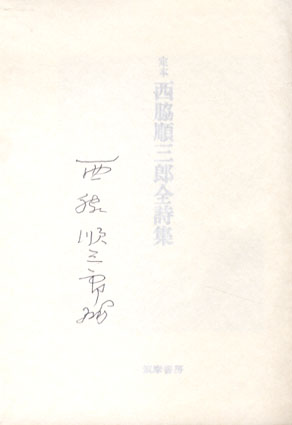 定本
西脇順三郎全詩集
西脇順三郎
筑摩書房